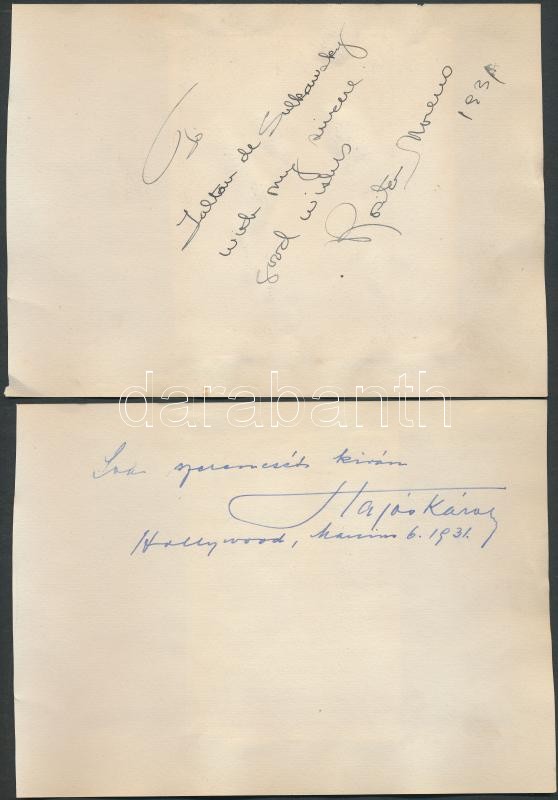 To
Zoltán de Sulkowsky
with my sincere
good wishes
Rosita Moreno
1931
darabanth
szerencsét kíván
Hajós Károly
Hollywood, Március 6. 1931.